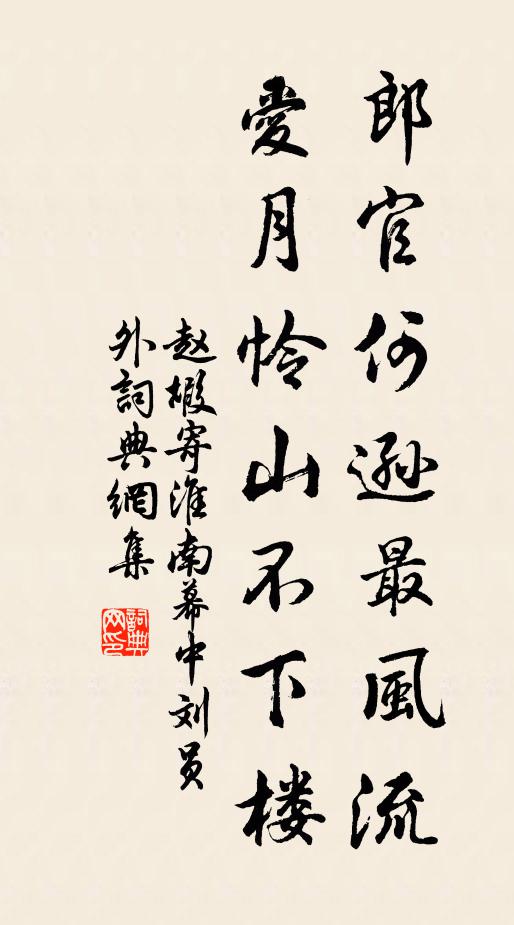 郎官何遜最風流
愛月怜山不下楼
赵嘏寄淮南幕中刘员
外詞典網集
詞典
网印